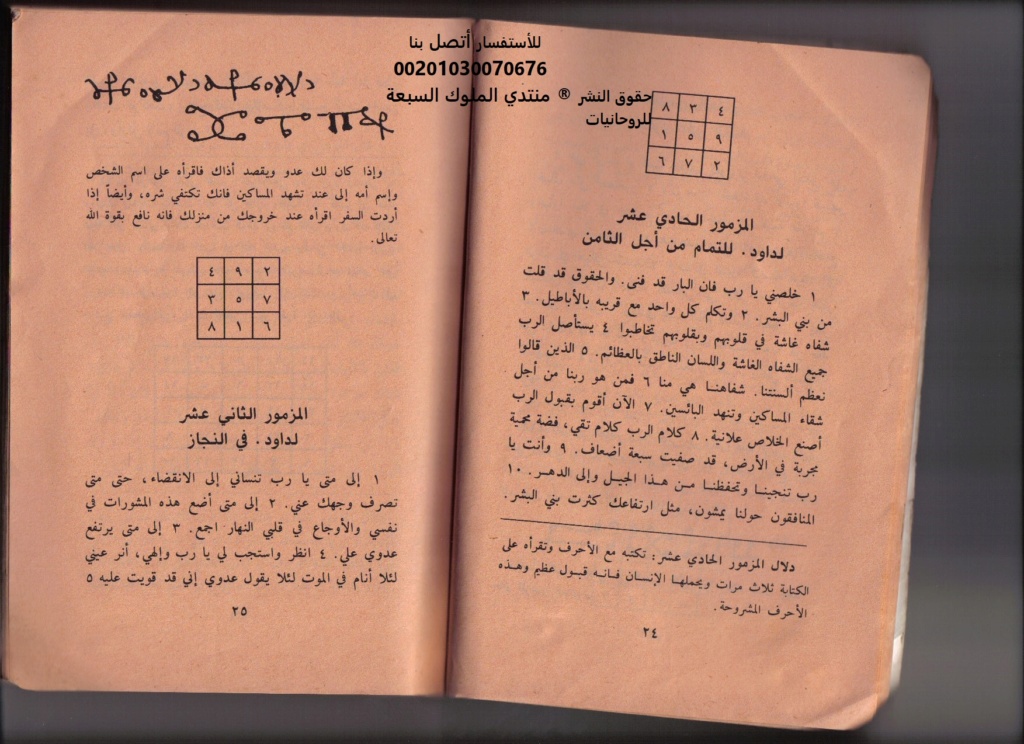 للأستفسار أتصل بنا
00201030070676
حقوق النشر ® منتدي الملوك السبعة
للروحانيات
٨ ٣ ٤
١ ٥ ٩
٦ ٧ ٢
المزمور الحادي عشر
لداود. للتمام من أجل الثامن
١ خلصني يا رب فان البار قد فنى. والحقوق قد قلت
من بني البشر. ٢ وتكلم كل واحد مع قريبه بالأباطيل. ٣
شفاه غاشة في قلوبهم وبقلوبهم تخاطبوا ٤ يستأصل الرب
جميع الشفاه الغاشة واللسان الناطق بالعظائم. ٥ الذين قالوا
نعظم ألسنتنا. شفاهنا هي منا ٦ فمن هو ربنا من أجل
شقاء المساكين وتنهد البائسين. ٧ الآن أقوم بقبول الرب
أصنع الخلاص علانية. ٨ كلام الرب كلام نقي، فضة محمية
مجربة في الأرض، قد صفيت سبعة أضعاف. ٩ وأنت يا
رب تنجينا وتحفظنا من هذا الجيل وإلى الدهر. ١٠
المنافقون حولنا يمشون، مثل ارتفاعك كثرت بني البشر.
دلال المزمور الحادي عشر: تكتبه مع الأحرف وتقرأه على
الكتابة ثلاث مرات ويحملها الإنسان فانه قبول عظيم وهذه
الأحرف المشروحة.
٢٤
وإذا كان لك عدو ويقصد أذاك فاقرأه على اسم الشخص
وإسم أمه إلى عند تشهد المساكين فانك تكتفي شره، وأيضاً إذا
أردت السفر اقرأه عند خروجك من منزلك فانه نافع بقوة الله
تعالى.
٤ ٩ ٢
٣ ٥ ٧
٨ ١ ٦
المزمور الثاني عشر
لداود. في النجاز
١ إلى متى يا رب تنساني إلى الانقضاء، حتى متى
تصرف وجهك عني. ٢ إلى متى أضع هذه المشورات في
نفسي والأوجاع في قلبي النهار اجمع. ٣ إلى متى يرتفع
عدوي علي. ٤ انظر واستجب لي يا رب وإلهي، أنر عيني
لئلا أنام في الموت لئلا يقول عدوي إني قد قويت عليه ٥
٢٥